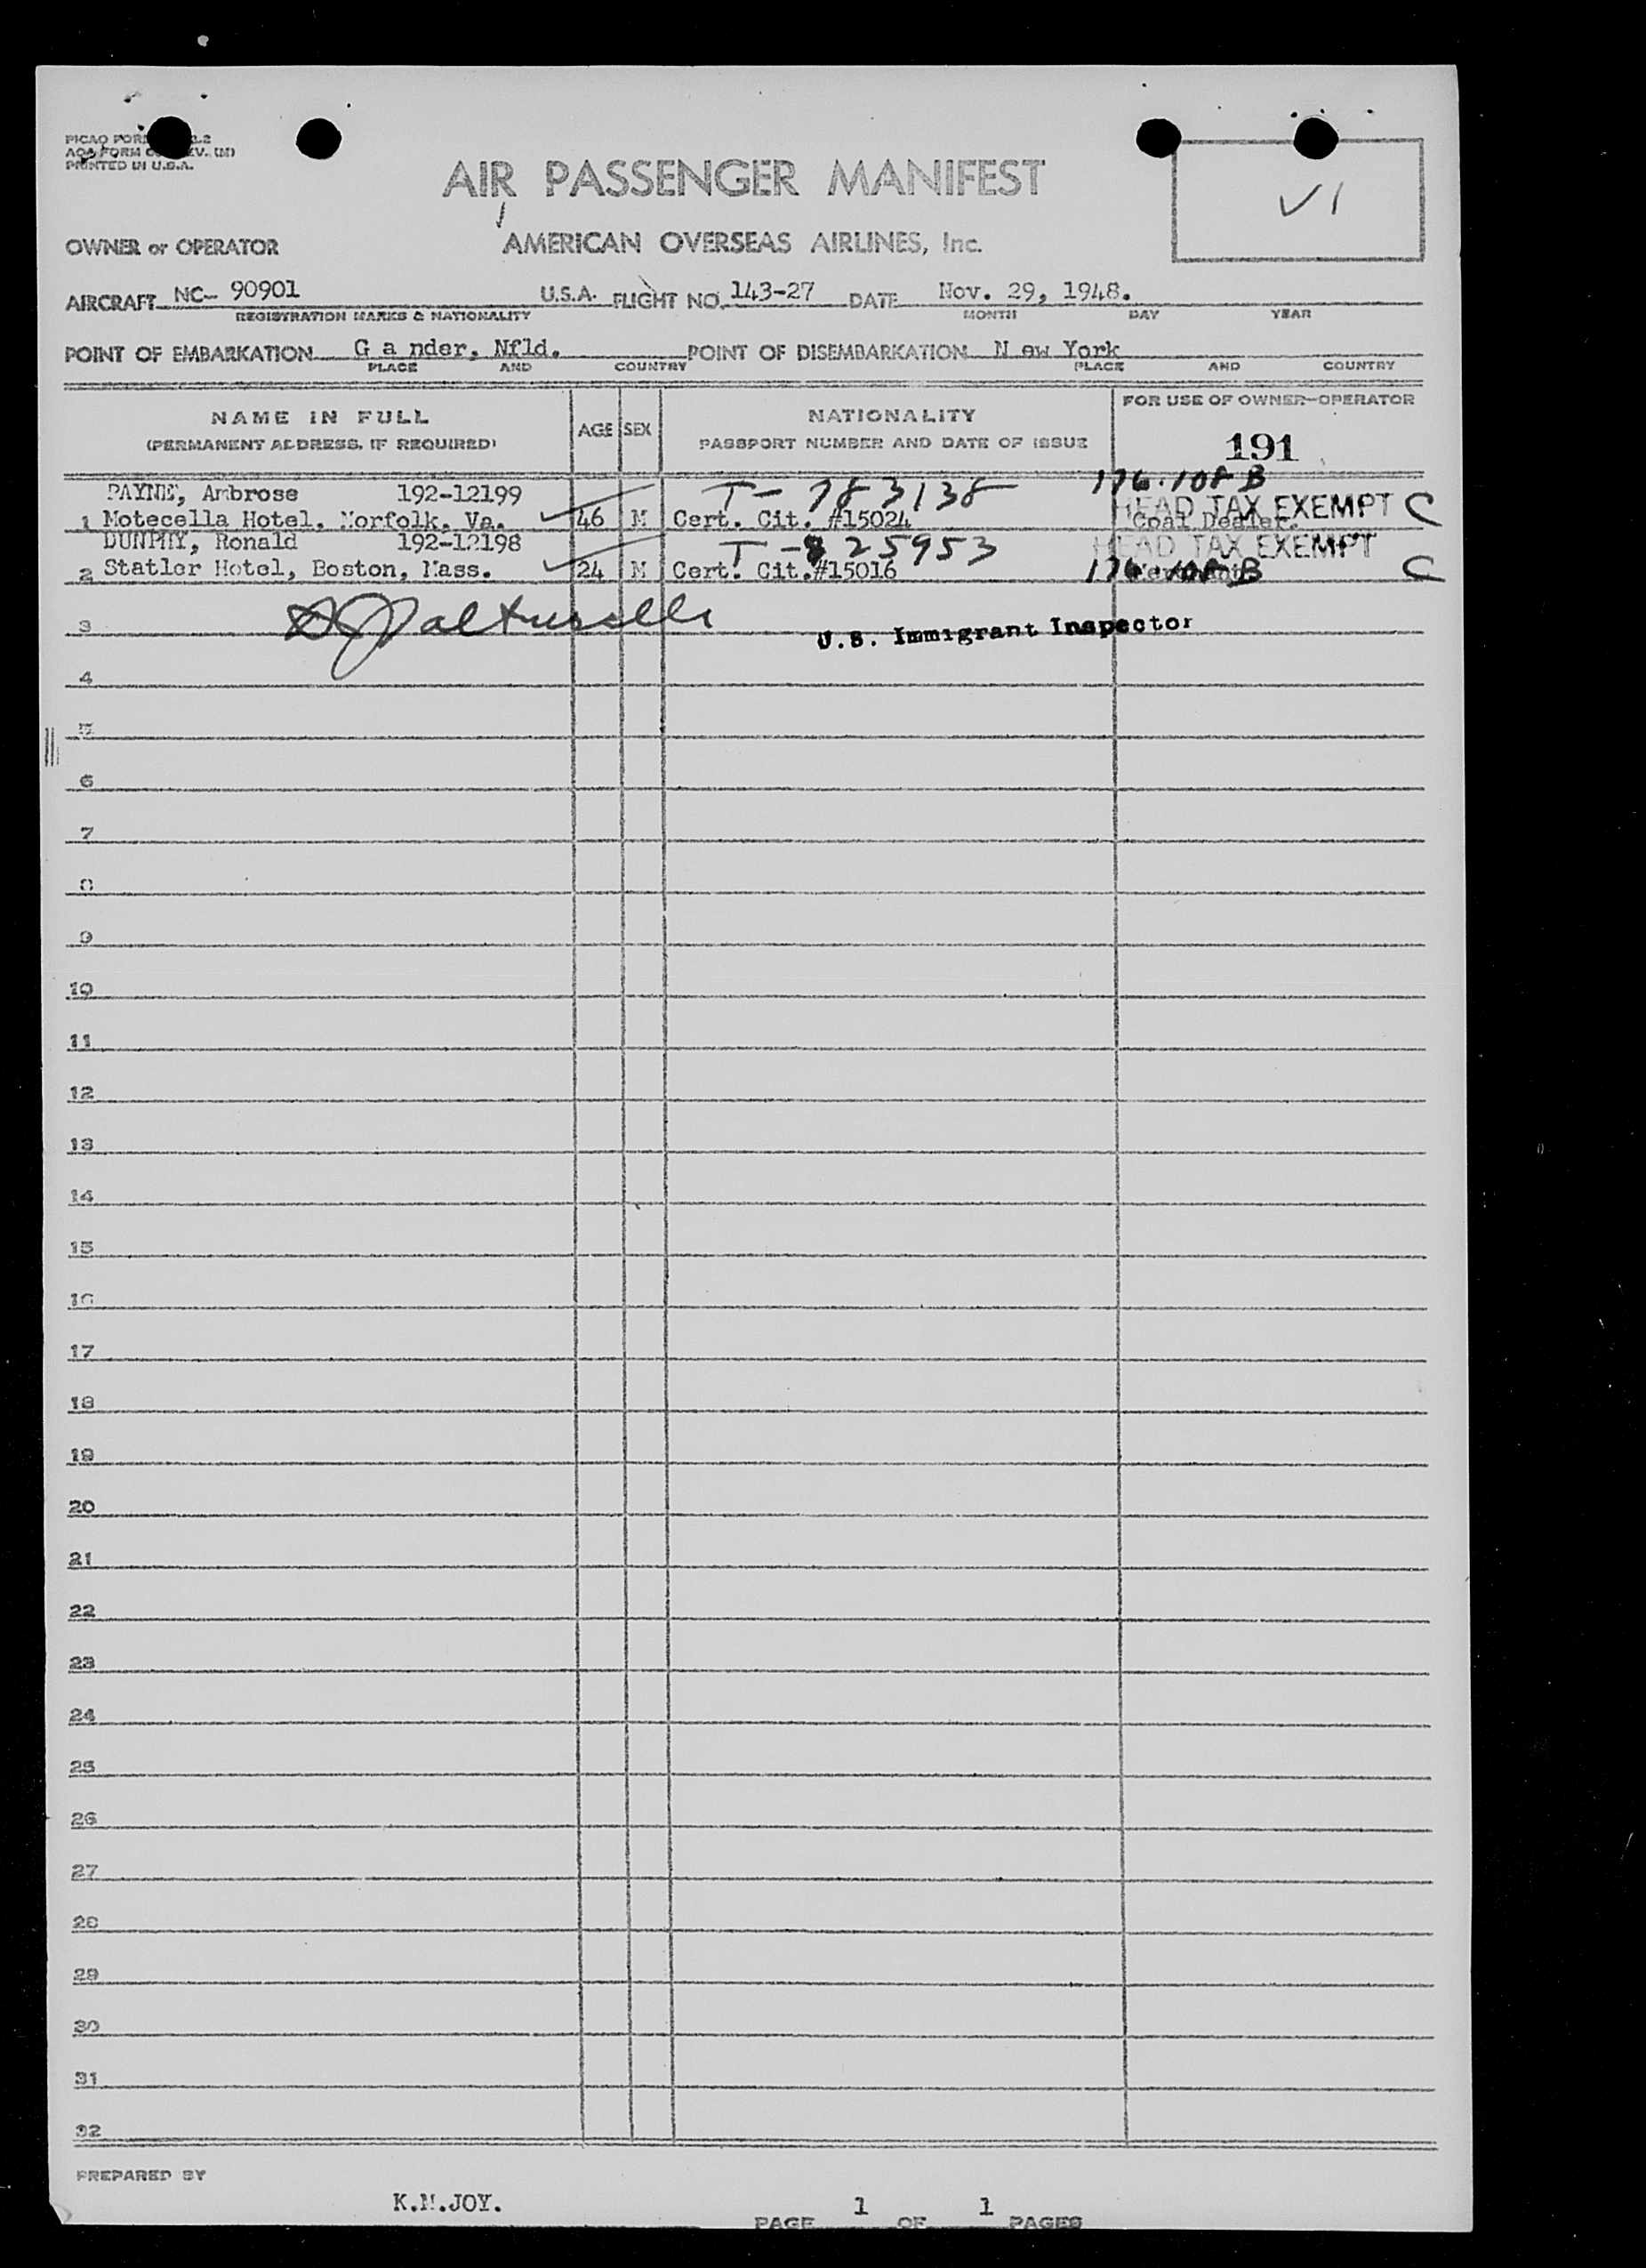 PICAO FORM
AOA FORM
PRINTED IN U.S.A.
AIR PASSENGER MANIFEST
V1
OWNER or OPERATOR AMERICAN OVERSEAS AIRLINES, Inc.
AIRCRAFT NC- 90901 U.S.A. FLIGHT NO. 143-27 DATE Nov. 29, 1948.
REGISTRATION MARKS & NATIONALITY MONTH DAY YEAR
POINT OF EMBARKATION G a nder, Nfld. POINT OF DISEMBARKATION N ew York
PLACE AND COUNTRY PLACE AND COUNTRY
NAME IN FULL AGE SEX NATIONALITY FOR USE OF OWNER-OPERATOR
(PERMANENT ADDRESS, IF REQUIRED) PASSPORT NUMBER AND DATE OF ISSUE
191
PAYNE, Ambrose 192-12199 T- 783138 176.108 B
HEAD TAX EXEMPT C
1 Motecella Hotel, Norfolk, Va. 46 M Cert. Cit. #15024 Coal Dealer.
DUNPHY, Ronald 192-12198 T-825953 HEAD TAX EXEMPT
2 Statler Hotel, Boston, Mass. 24 M Cert. Cit.#15016 176.108 B C
3 U.S. Immigrant Inspector
4
5
6
7
8
9
10
11
12
13
14
15
16
17
18
19
20
21
22
23
24
25
26
27
28
29
30
31
32
PREPARED BY
K.M.JOY.
PAGE 1 OF 1 PAGES